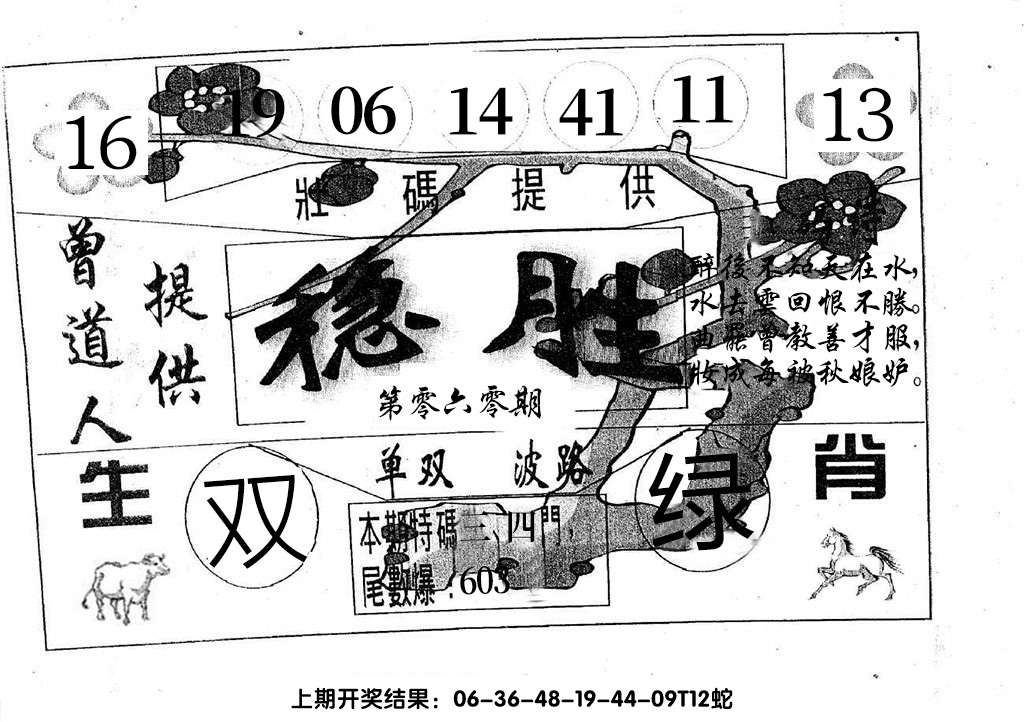 16 19 06 14 41 11 13
壯碼提供
曾道人
提供
稳胜
第零六零期
醉後不知天在水，
水去雲回恨不勝。
曲罷曾教善才服，
妝成每被秋娘妒。
生肖
单双 波路
双
绿
本期特碼三、四門，
尾數爆：603
上期开奖结果：06-36-48-19-44-09T12蛇